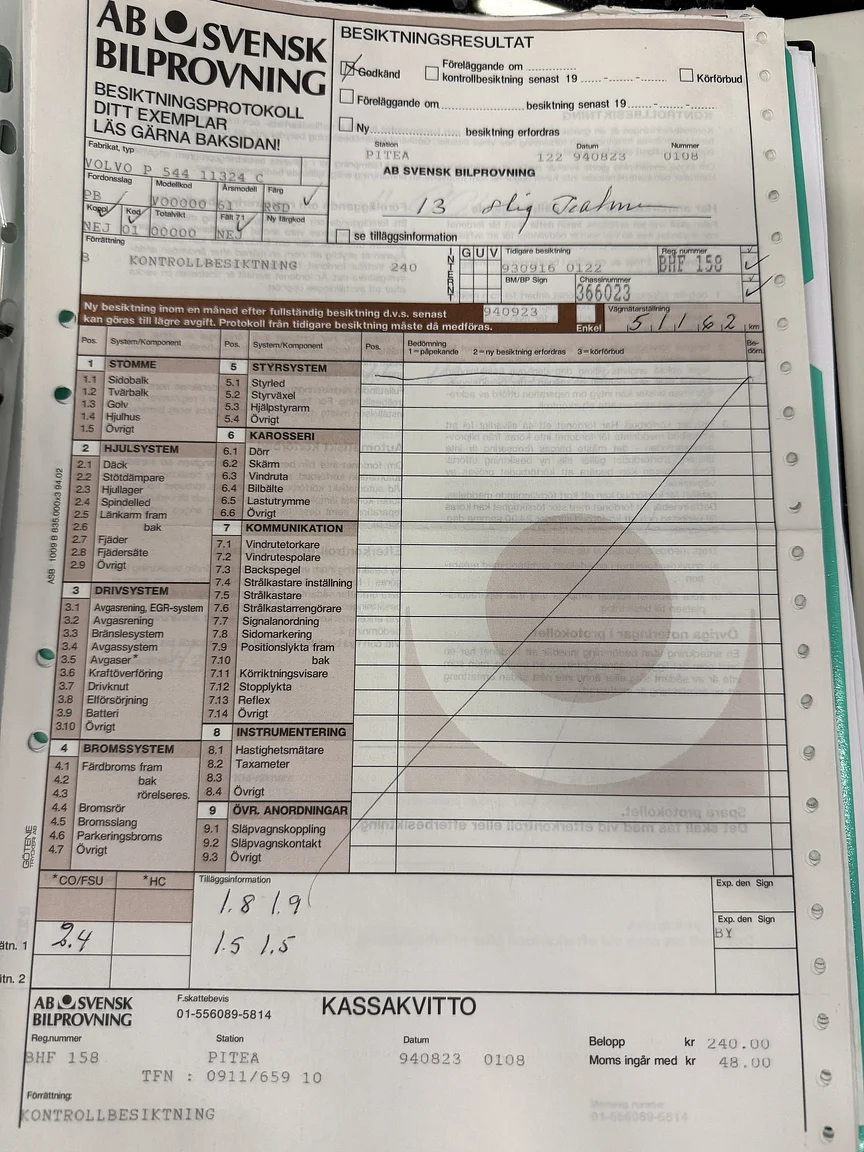 AB SVENSK
BILPROVNING
BESIKTNINGSPROTOKOLL
DITT EXEMPLAR
LÄS GÄRNA BAKSIDAN!
BESIKTNINGSRESULTAT
Godkänd
Föreläggande om
kontrollbesiktning senast 19 ......-......-......
Körförbud
Föreläggande om .................... besiktning senast 19......-......-......
Ny .................... besiktning erfordras
Station Datum Nummer
PITEA 122 940823 0108
AB SVENSK BILPROVNING
13 Stig
se tilläggsinformation
Fabrikat, typ
VOLVO P 544 11324 C
Fordonsslag Modellkod Årsmodell Färg
PB V00000 61 RÖD
Koppl Kod Totalvikt Fält 71 Ny färgkod
NEJ 01 00000 NEJ
Förrättning
B KONTROLLBESIKTNING 240
INTERNT
G U V
Tidigare besiktning
930916 0122
Reg. nummer
BHF 158
BM/BP Sign
Chassinummer
366023
Ny besiktning inom en månad efter fullständig besiktning d.v.s. senast 940923
kan göras till lägre avgift. Protokoll från tidigare besiktning måste då medföras.
Enkel
Vägmätarställning
51162 km
Pos. System/Komponent Pos. System/Komponent Pos. Bedömning
1 = påpekande 2 = ny besiktning erfordras 3 = körförbud
Be-
döm.
1 STOMME
1.1 Sidobalk
1.2 Tvärbalk
1.3 Golv
1.4 Hjulhus
1.5 Övrigt
2 HJULSYSTEM
2.1 Däck
2.2 Stötdämpare
2.3 Hjullager
2.4 Spindelled
2.5 Länkarm fram
2.6 bak
2.7 Fjäder
2.8 Fjädersäte
2.9 Övrigt
3 DRIVSYSTEM
3.1 Avgasrening, EGR-system
3.2 Avgasrening
3.3 Bränslesystem
3.4 Avgassystem
3.5 Avgaser*
3.6 Kraftöverföring
3.7 Drivknut
3.8 Elförsörjning
3.9 Batteri
3.10 Övrigt
4 BROMSSYSTEM
4.1 Färdbroms fram
4.2 bak
4.3 rörelseres.
4.4 Bromsrör
4.5 Bromsslang
4.6 Parkeringsbroms
4.7 Övrigt
5 STYRSYSTEM
5.1 Styrled
5.2 Styrväxel
5.3 Hjälpstyrarm
5.4 Övrigt
6 KAROSSERI
6.1 Dörr
6.2 Skärm
6.3 Vindruta
6.4 Bilbälte
6.5 Lastutrymme
6.6 Övrigt
7 KOMMUNIKATION
7.1 Vindrutetorkare
7.2 Vindrutespolare
7.3 Backspegel
7.4 Strålkastare inställning
7.5 Strålkastare
7.6 Strålkastarrengörare
7.7 Signalanordning
7.8 Sidomarkering
7.9 Positionslykta fram
7.10 bak
7.11 Körriktningsvisare
7.12 Stopplykta
7.13 Reflex
7.14 Övrigt
8 INSTRUMENTERING
8.1 Hastighetsmätare
8.2 Taxameter
8.3
8.4 Övrigt
9 ÖVR. ANORDNINGAR
9.1 Släpvagnskoppling
9.2 Släpvagnskontakt
9.3 Övrigt
ASB 1009 B 836.000x3 94.02
*CO/FSU *HC
Tilläggsinformation
1.8 1.9
1.5 1.5
Exp. den Sign
Exp. den Sign
BY
ätn. 1 2.4
ätn. 2
AB SVENSK
BILPROVNING
F.skattebevis
01-556089-5814
KASSAKVITTO
Reg.nummer Station Datum
BHF 158 PITEA 940823 0108
TFN : 0911/659 10
Belopp kr 240.00
Moms ingår med kr 48.00
Förrättning:
KONTROLLBESIKTNING